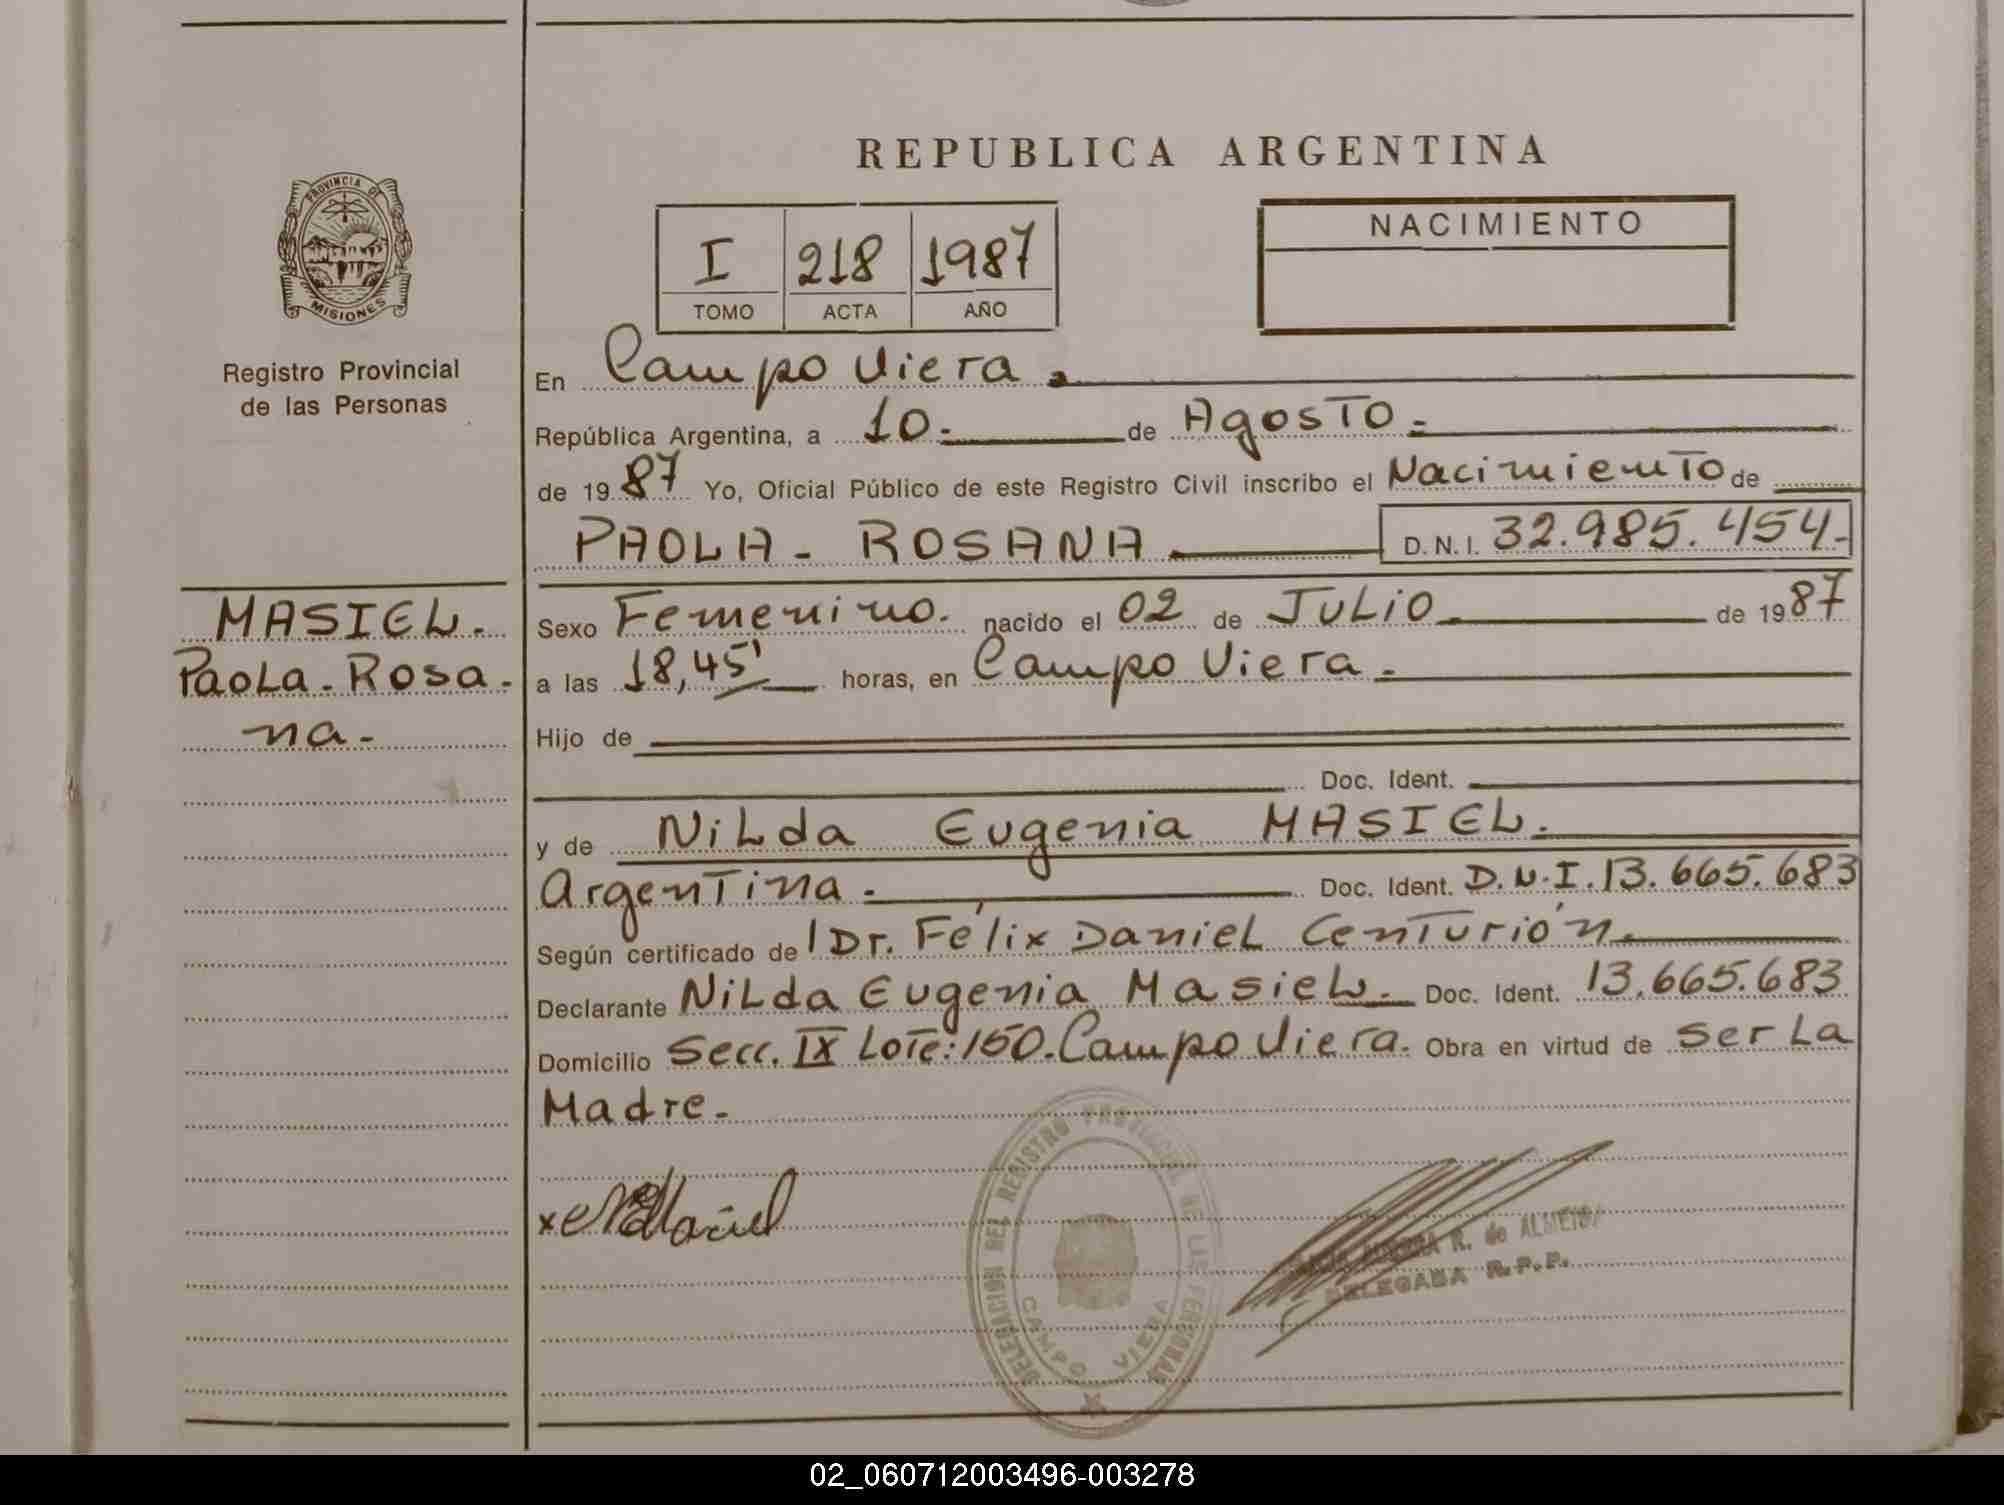 REPUBLICA ARGENTINA
PROVINCIA DE
MISIONES
Registro Provincial
de las Personas
I 218 1987
TOMO ACTA AÑO
NACIMIENTO
En Campo Viera.
República Argentina, a 10.- de Agosto.-
de 1987 Yo, Oficial Público de este Registro Civil inscribo el Nacimiento de
PAOLA - ROSANA D.N.I. 32.985.454.-
MASIEL.
Paola. Rosa-
na.-
Sexo Femenino. nacido el 02 de JULIO de 1987
a las 18,45' horas, en Campo Viera.-
Hijo de
Doc. Ident.
y de Nilda Eugenia MASIEL.
Argentina.- Doc. Ident. D.N.I. 13.665.683
Según certificado de Dr. Félix Daniel Centurión.
Declarante Nilda Eugenia Masiel. Doc. Ident. 13.665.683
Domicilio Secc. IX Lote: 150. Campo Viera. Obra en virtud de ser la
Madre.-
DELEGACION DEL REGISTRO PROVINCIAL DE LAS PERSONAS
CAMPO VIERA
R. de ALMEIDA
DELEGADA R.P.P.
02_060712003496-003278